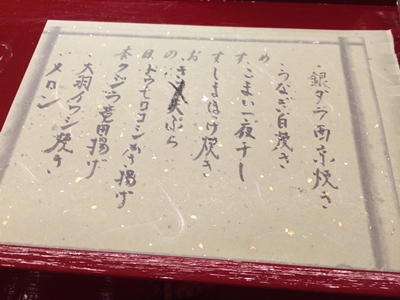 本日のおすすめ
・銀ダラ西京焼き
・うなぎ白焼き
・こまい一夜干し
・しまほっけ焼き
天ぷら
・トウモロコシかき揚げ
・クジラ竜田揚げ
・大羽イワシ焼き
・メロン